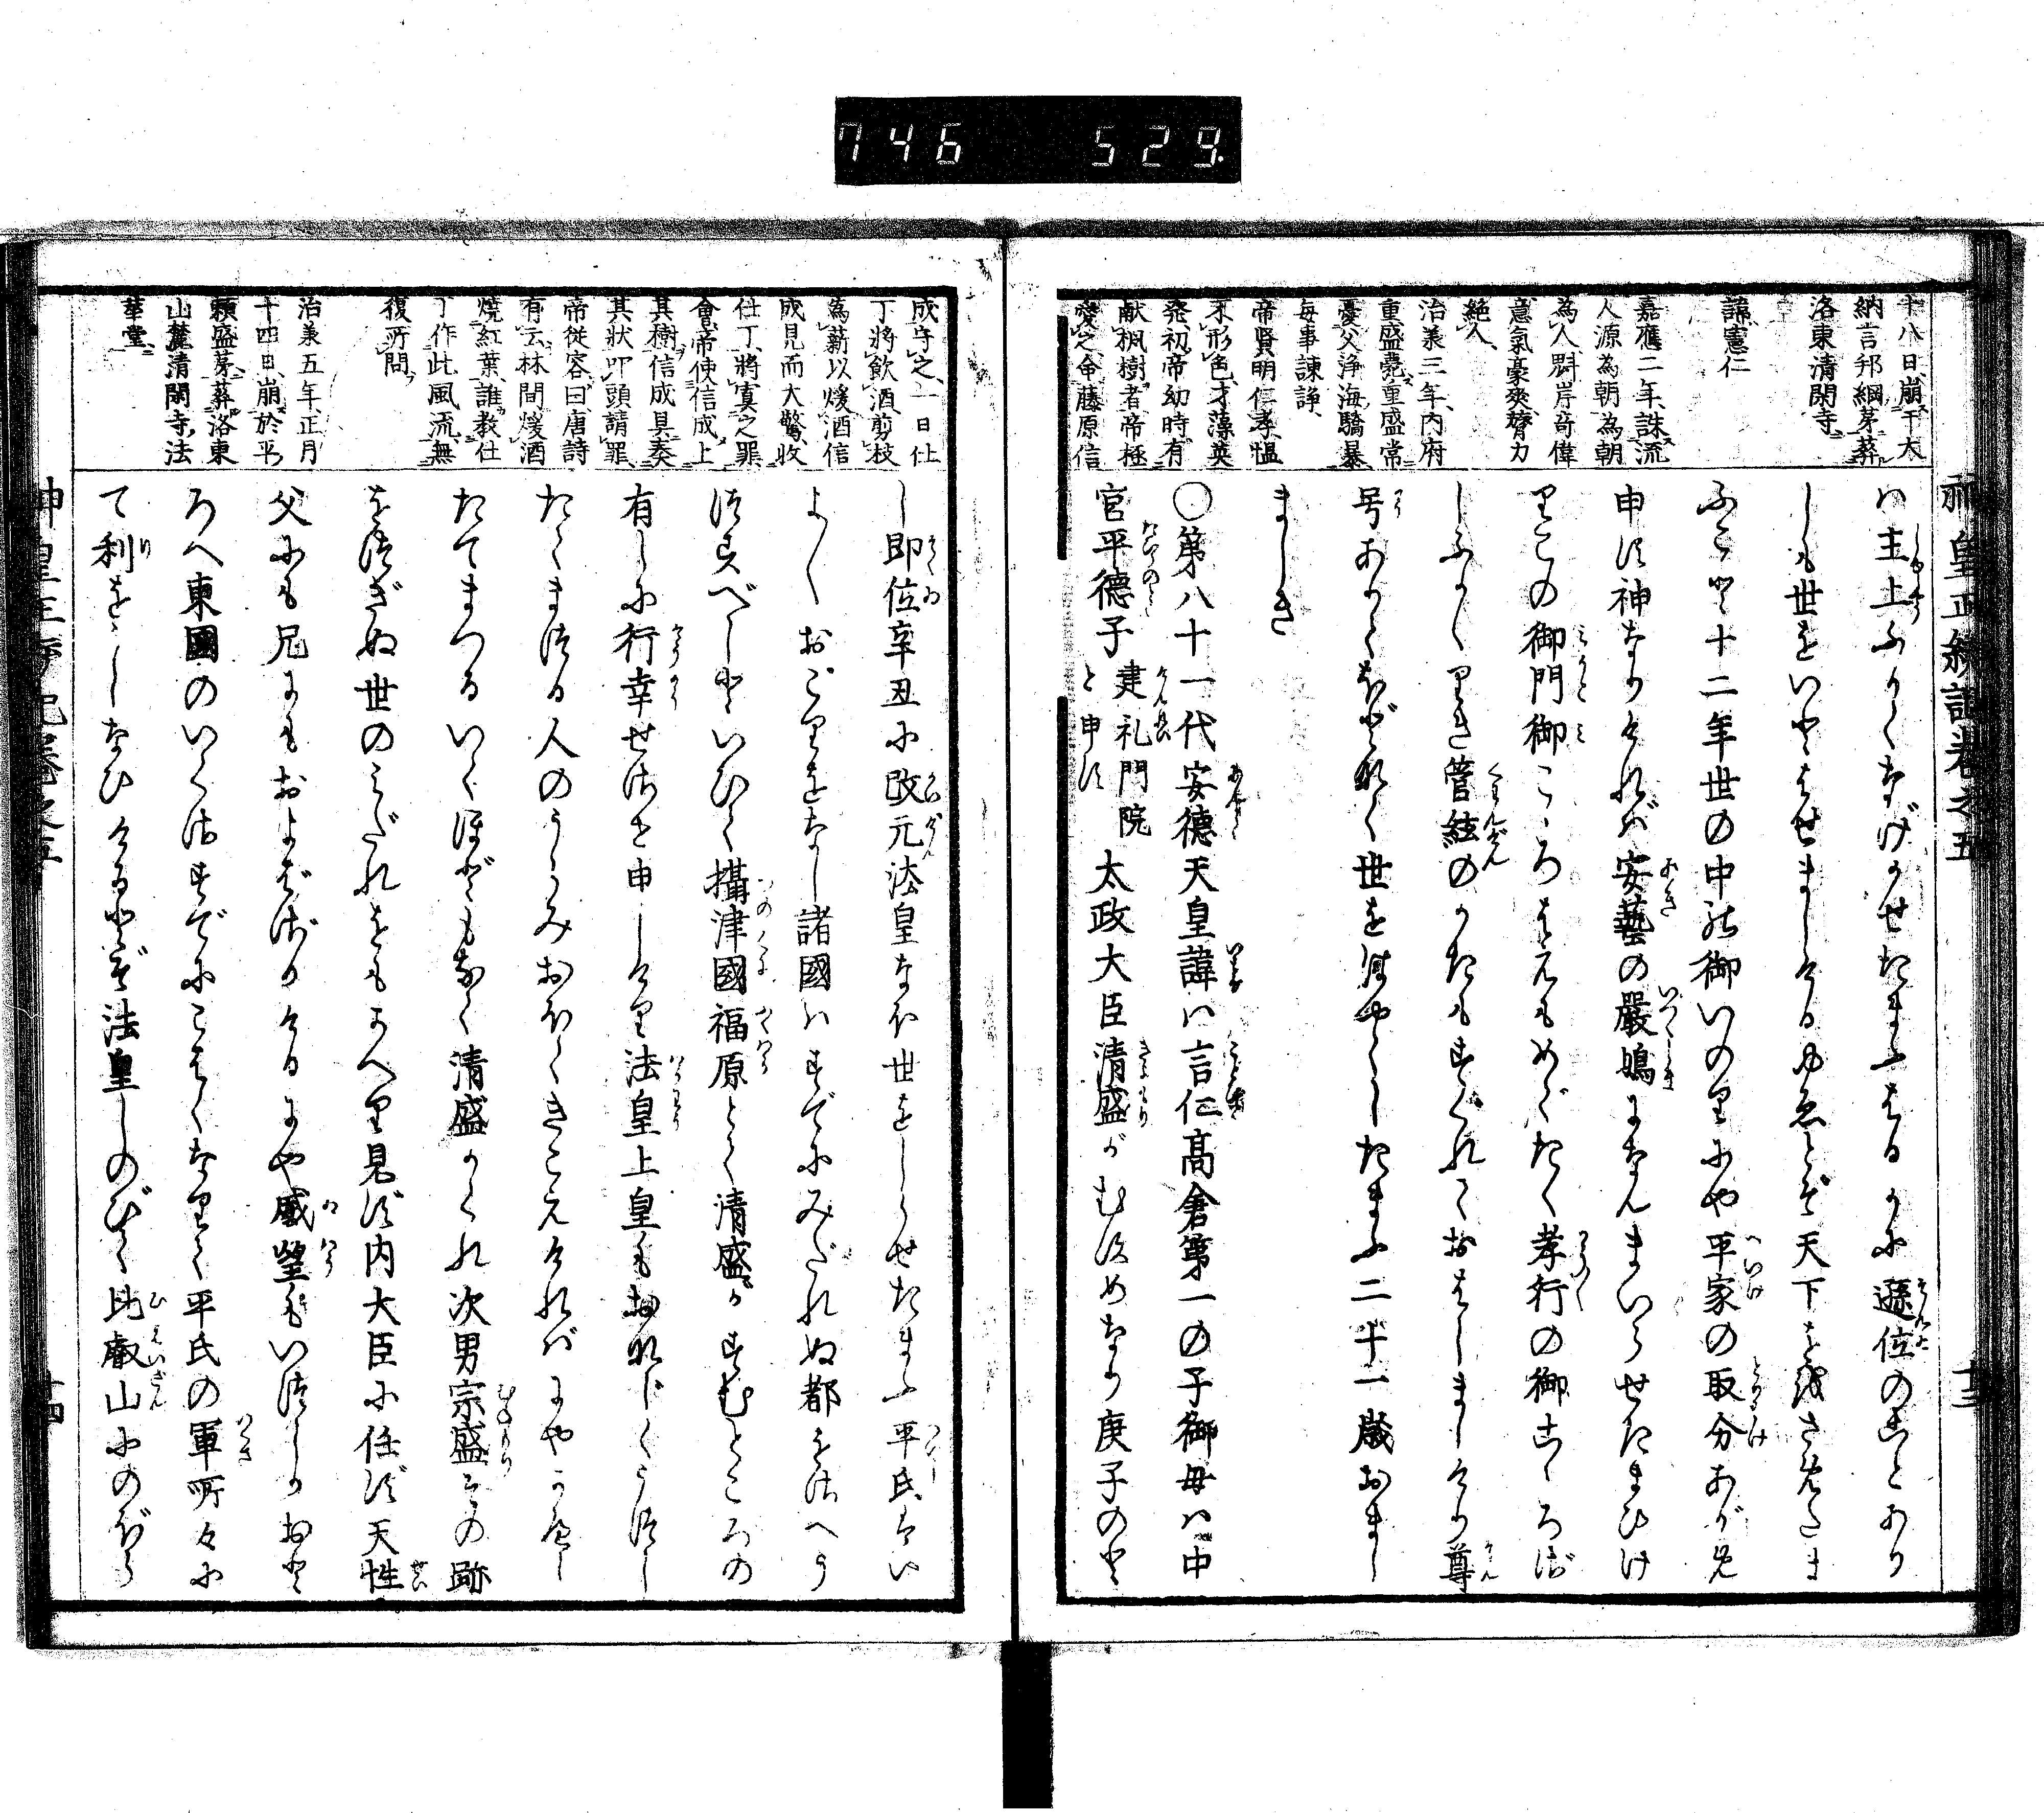 746 529.
神皇正統記巻之五
十三
十八日、崩、于大
納言邦綱、茅葬
洛東清閑寺、
諱憲仁
嘉應二年、誅流
人源為朝、為朝
為人、魁岸奇偉
意氣豪爽、膂力
絶人、
治美三年、内府
重盛薨、重盛常
憂父浄海驕暴
毎事諫諍、
帝賢明仁孝、慍
不形色、才藻英
発、初帝幼時有
献楓樹者、帝極
愛之、命藤原信
ハ主上ふかくなげかせたまふはるかに遜位のことあり
しも世をいとはせましける ゆゑとぞ天下を 
ふこと十二年世の中の御いのりにや平家の取分あがめ
申す神なりければ安藝の嚴嶋になんまいらせたまひけ
りこの御門御こゝろばえもめでたく孝行の御こゝろざ
しふかくりき管絃のかたもすぐれておはしましけり尊
号ありてほどなく世をはやくしたまふ二十一歳おまし
ましき
○第八十一代安徳天皇諱ハ言仁高倉第一の子御母ハ中
官平徳子 建礼門院と申す 太政大臣清盛がむすめなり庚子のと
成守之、一日仕
丁將飲酒、剪枝
為薪以煖酒、信
成見而大驚、收
仕丁、將寘之罪
會帝使信成上
其樹、信成具奏
其狀、叩頭請罪
帝従容曰、唐詩
有云、林間煖酒
燒紅葉、誰教仕
丁作此風流、無
復所問、
治美五年、正月
十四日、崩於平
頼盛茅、葬洛東
山麓清閑寺、法
華堂、
し即位辛丑に改元法皇なほ世をしらせたまふ平氏はい
よ〱おごりをなし諸國ハすでにみだれぬ都をさへう
つすべしといひて攝津國福原とて清盛がすむところの
有しに行幸せさせ申しけり法皇上皇もおなじくうつし
たてまつる人のうらみおほくきこえければにやかへし
たてまつるいくほどもなく清盛かくれ次男宗盛その跡
をつぎぬ世のみだれをもかへり見ず内大臣に任ず天性
父にも兄にもおよばざりけるにや威望もいつしかおと
ろへ東國のいくさすでにこはくなりて平氏の軍所々に
て利をうしなひけるとぞ法皇しのびて比叡山にのぼら
神皇正統記巻之五
十四